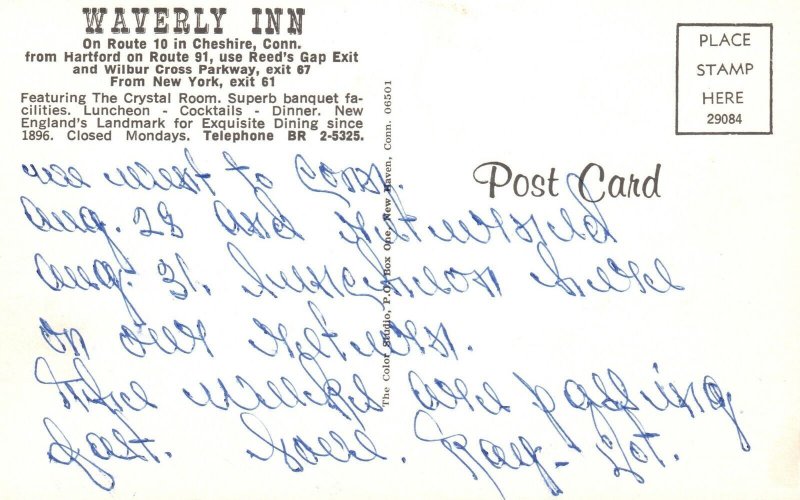 WAVERLY INN
On Route 10 in Cheshire, Conn.
from Hartford on Route 91, use Reed's Gap Exit
and Wilbur Cross Parkway, exit 67
From New York, exit 61
Featuring The Crystal Room. Superb banquet fa-
cilities. Luncheon - Cocktails - Dinner. New
England's Landmark for Exquisite Dining since
1896. Closed Mondays. Telephone BR 2-5325.
The Color Studio, P.O. Box One, New Haven, Conn. 06501
PLACE
STAMP
HERE
29084
Post Card
we went to Conn.
Aug. 28 and returned
Aug. 31. Luncheon here
on our return.
The weeks are passing
fast. Love. Ray - Dot.